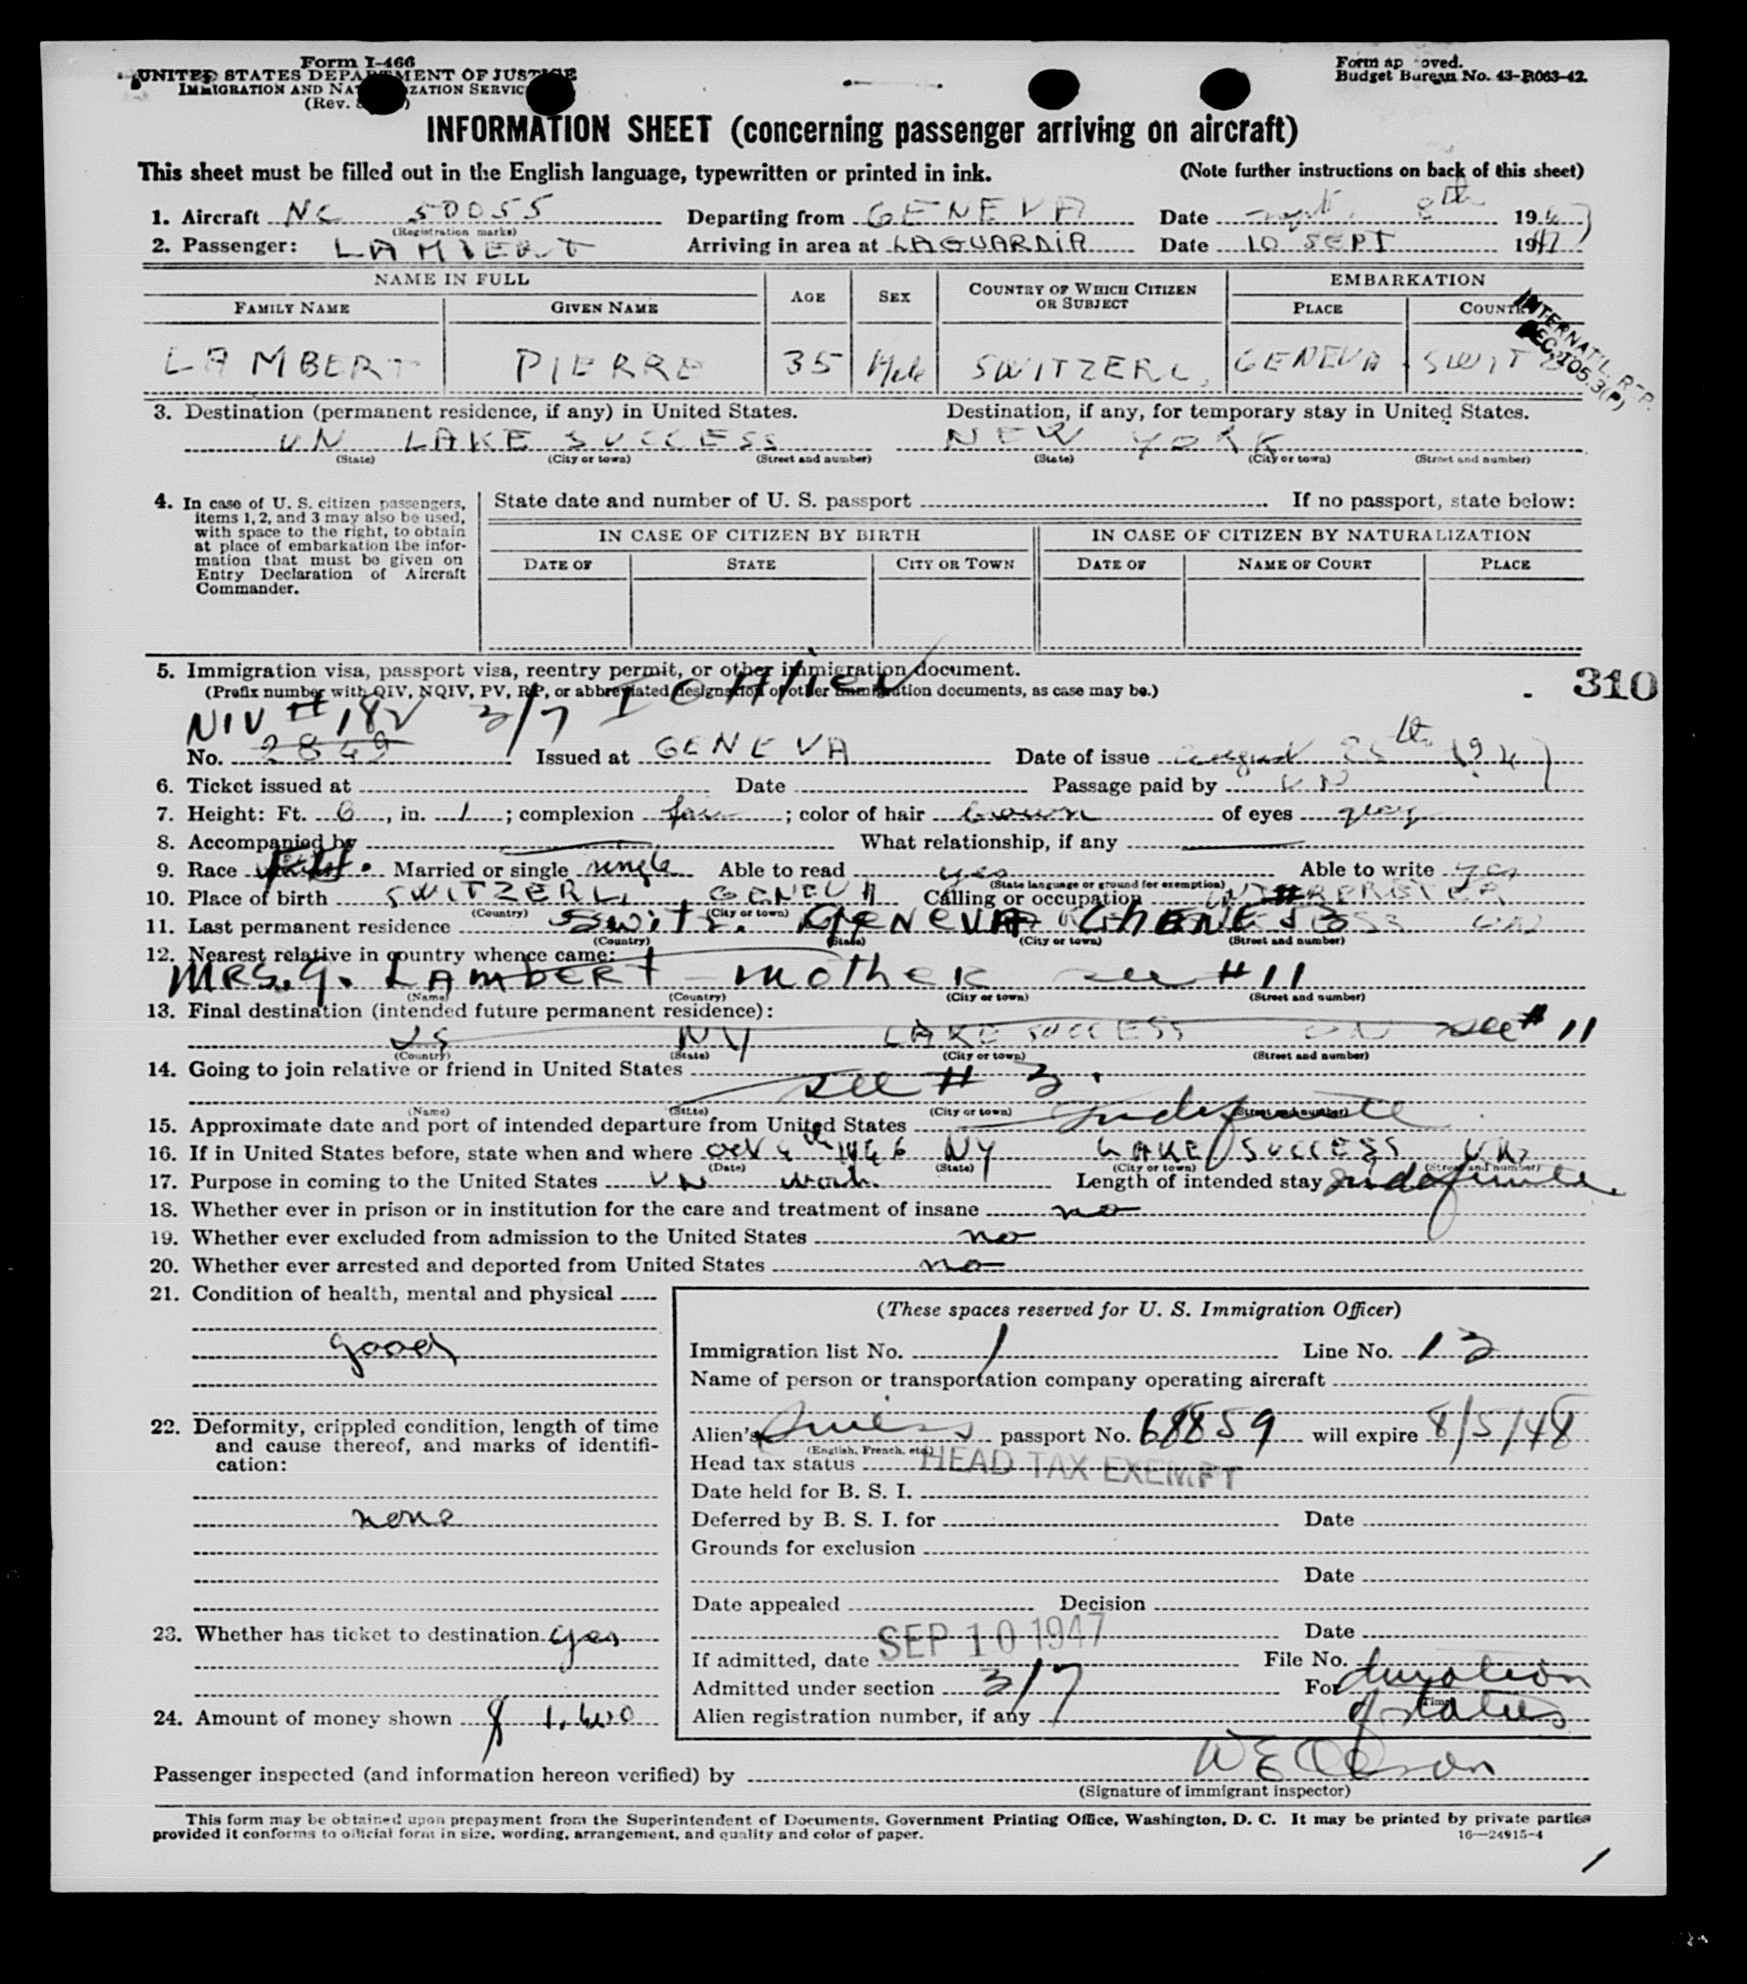 Form I-466
UNITED STATES DEPARTMENT OF JUSTICE
IMMIGRATION AND NATURALIZATION SERVICE
(Rev.
Form approved.
Budget Bureau No. 43-R063-42.
INFORMATION SHEET (concerning passenger arriving on aircraft)
This sheet must be filled out in the English language, typewritten or printed in ink. (Note further instructions on back of this sheet)
1. Aircraft NC 50055 Departing from GENEVA Date 8th 1947
(Registration marks)
2. Passenger: LAMBERT Arriving in area at LAGUARDIA Date 10 SEPT 1947
NAME IN FULL AGE SEX COUNTRY OF WHICH CITIZEN OR SUBJECT EMBARKATION
FAMILY NAME GIVEN NAME PLACE COUNTRY
INTERNAT'L REP.
SEC. 105.3(P)
LAMBERT PIERRE 35 Male SWITZERL. GENEVA SWITZ
3. Destination (permanent residence, if any) in United States. Destination, if any, for temporary stay in United States.
UN LAKE SUCCESS NEW YORK
(State) (City or town) (Street and number) (State) (City or town) (Street and number)
4. In case of U. S. citizen passengers, items 1, 2, and 3 may also be used, with space to the right, to obtain at place of embarkation the information that must be given on Entry Declaration of Aircraft Commander.
State date and number of U. S. passport If no passport, state below:
IN CASE OF CITIZEN BY BIRTH IN CASE OF CITIZEN BY NATURALIZATION
DATE OF STATE CITY OR TOWN DATE OF NAME OF COURT PLACE
5. Immigration visa, passport visa, reentry permit, or other immigration document.
(Prefix number with QIV, NQIV, PV, RP, or abbreviated designation of other immigration documents, as case may be.)
310
NIV # 182 3/7 IO Alien
No. 2849 Issued at GENEVA Date of issue August 25th 1947
6. Ticket issued at Date Passage paid by UN
7. Height: Ft. 6, in. 1; complexion fair; color of hair brown of eyes grey
8. Accompanied by What relationship, if any
9. Race Married or single single Able to read yes Able to write yes
(State language or ground for exemption)
10. Place of birth SWITZERL. GENEVA Calling or occupation
(Country) (City or town)
11. Last permanent residence Switz. GENEVA
(Country) (State) (City or town) (Street and number)
12. Nearest relative in country whence came:
MRS. G. LAMBERT - mother see #11
(Name) (Country) (City or town) (Street and number)
13. Final destination (intended future permanent residence):
US NY LAKE SUCCESS UN see # 11
(Country) (State) (City or town) (Street and number)
14. Going to join relative or friend in United States
see # 3.
(Name) (State) (City or town) (Street and number)
15. Approximate date and port of intended departure from United States Indefinite
16. If in United States before, state when and where Oct 4th 1946 NY LAKE SUCCESS UN
(Date) (State) (City or town) (Street and number)
17. Purpose in coming to the United States UN work. Length of intended stay Indefinite
18. Whether ever in prison or in institution for the care and treatment of insane no
19. Whether ever excluded from admission to the United States no
20. Whether ever arrested and deported from United States no
21. Condition of health, mental and physical
good
22. Deformity, crippled condition, length of time and cause thereof, and marks of identification:
none
23. Whether has ticket to destination yes
24. Amount of money shown $
(These spaces reserved for U. S. Immigration Officer)
Immigration list No. 1 Line No. 12
Name of person or transportation company operating aircraft
Alien's Swiss passport No. 68859 will expire 8/5/48
(English, French, etc.)
Head tax status HEAD TAX EXEMPT
Date held for B. S. I.
Deferred by B. S. I. for Date
Grounds for exclusion
Date
Date appealed Decision
Date
If admitted, date SEP 10 1947 File No.
Admitted under section 3/7 For duration of status
(Time)
Alien registration number, if any
Passenger inspected (and information hereon verified) by W E Olson
(Signature of immigrant inspector)
This form may be obtained upon prepayment from the Superintendent of Documents, Government Printing Office, Washington, D. C. It may be printed by private parties
provided it conforms to official form in size, wording, arrangement, and quality and color of paper.
16—24915-4
1